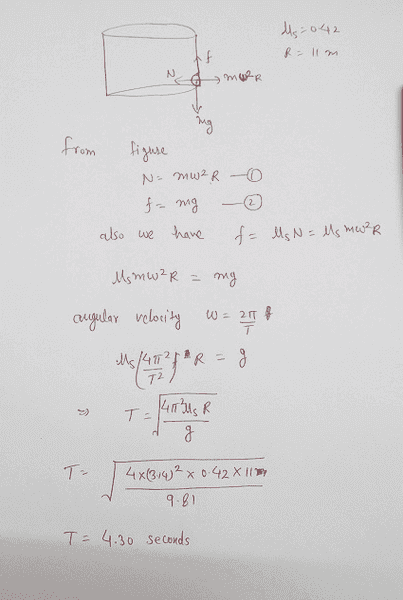 μs = 0.42
R = 11 m
f
N
mω²R
mg
from figure
N = mω²R —①
f = mg —②
also we have f = μsN = μs mω²R
μs mω²R = mg
angular velocity ω = 2π/T
μs (4π²/T²) R = g
⇒ T = √(4π²μs R/g)
T = √(4×(3.14)² × 0.42 × 11/9.81)
T = 4.30 seconds